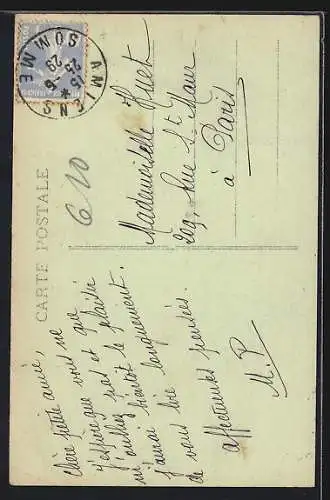 CARTE POSTALE
AMIENS
SOMME
610
Mademoiselle Huet
209, Rue St Maur
à Paris
Chère petite amie,
J'espère que vous ne
m'oubliez pas et que
j'aurai bientôt le plaisir
de vous lire longuement.
affectueuses pensées.
M. P